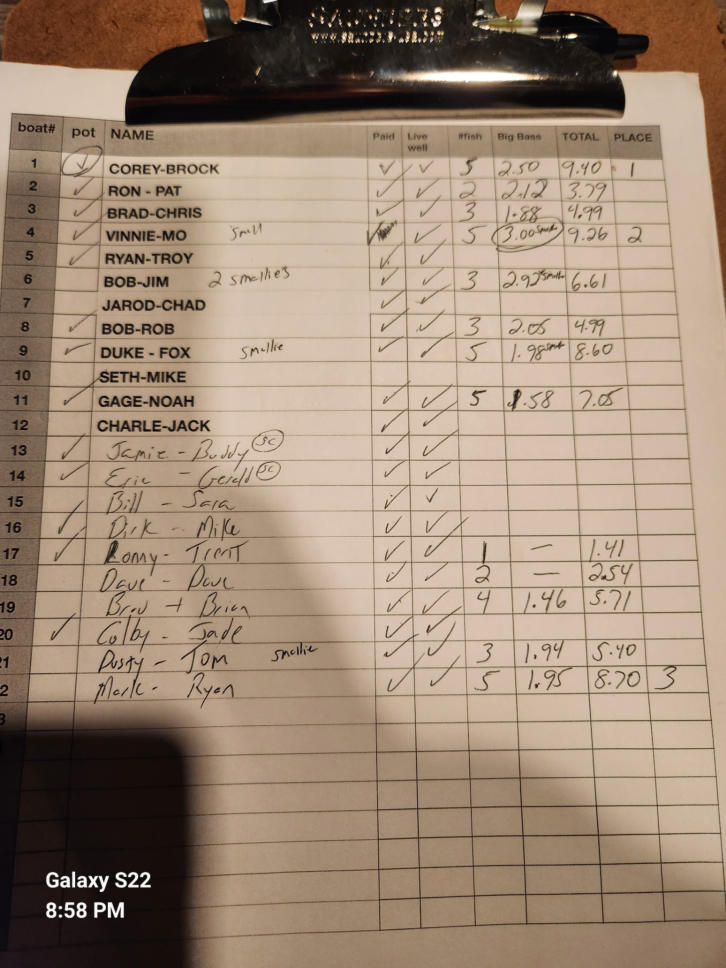 SAUNDERS
boat# pot NAME Paid Live well #fish Big Bass TOTAL PLACE
1 ✓ COREY-BROCK ✓ ✓ 5 2.50 9.40 1
2 ✓ RON - PAT ✓ ✓ 2 2.12 3.79
3 ✓ BRAD-CHRIS ✓ ✓ 3 1.88 4.99
4 ✓ VINNIE-MO small ✓ ✓ 5 3.00 9.26 2
5 ✓ RYAN-TROY ✓ ✓
6 BOB-JIM 2 smallies ✓ ✓ 3 2.92 6.61
7 JAROD-CHAD ✓ ✓
8 ✓ BOB-ROB ✓ ✓ 3 2.05 4.99
9 ✓ DUKE - FOX smallie ✓ ✓ 5 1.98 8.60
10 SETH-MIKE
11 ✓ GAGE-NOAH ✓ ✓ 5 1.58 7.05
12 CHARLE-JACK ✓ ✓
13 ✓ Jamie - Buddy SC ✓ ✓
14 ✓ Eric - Gerald SC ✓ ✓
15 Bill - Sara ✓ ✓
16 ✓ Dirk - Mike ✓ ✓
17 ✓ Ronny - Trent ✓ ✓ 1 — 1.41
18 Dave - Dave ✓ ✓ 2 — 2.54
19 Brad + Brian ✓ ✓ 4 1.46 5.71
20 ✓ Colby - Jade ✓ ✓
21 Dusty - Tom smallie ✓ ✓ 3 1.94 5.40
2 Mark - Ryan ✓ ✓ 5 1.95 8.70 3
3
Galaxy S22
8:58 PM